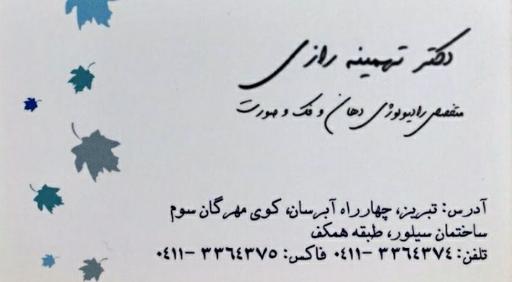 دکتر تهمینه رازی
متخصص رادیولوژی دهان و فک و صورت
آدرس: تبریز، چهارراه آبرسان، کوی مهرگان سوم
ساختمان سیلور، طبقه همکف
تلفن: ۳۳۶٤۳۷٤ -۰٤۱۱ فاکس: ۳۳۶٤۳۷۵ -۰٤۱۱